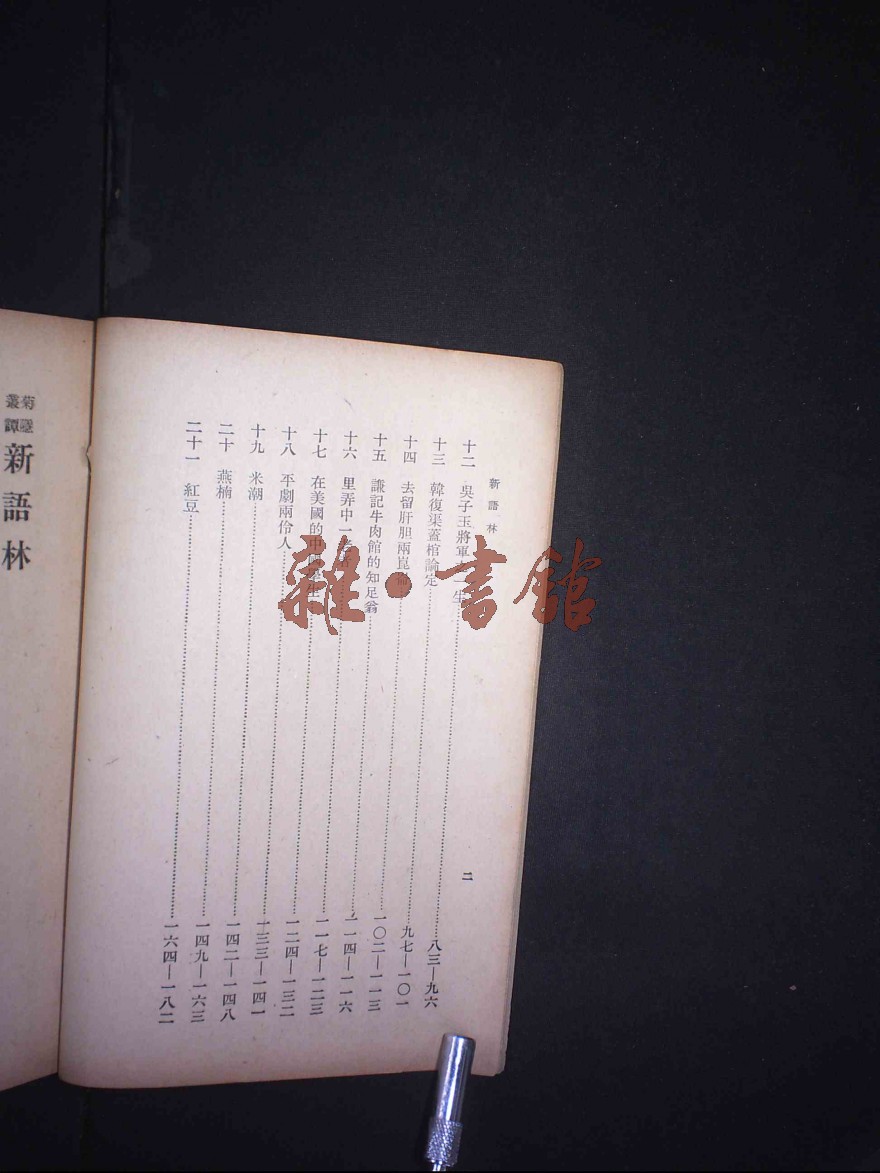 新語林
十二 吳子玉將軍一生 八三—九六
十三 韓復渠蓋棺論定 九七—一〇一
十四 去留肝胆兩崑 一〇二—一一三
十五 謙記牛肉館的知足翁 一一四—一一六
十六 里弄中一 一一七—一二三
十七 在美國的中國學生 一二四—一三二
十八 平劇兩伶人 一三三—一四一
十九 米潮 一四二—一四八
二十 燕楠 一四九—一六三
二十一 紅豆 一六四—一八二
二
菊隱叢譚
新語林
雜·書館